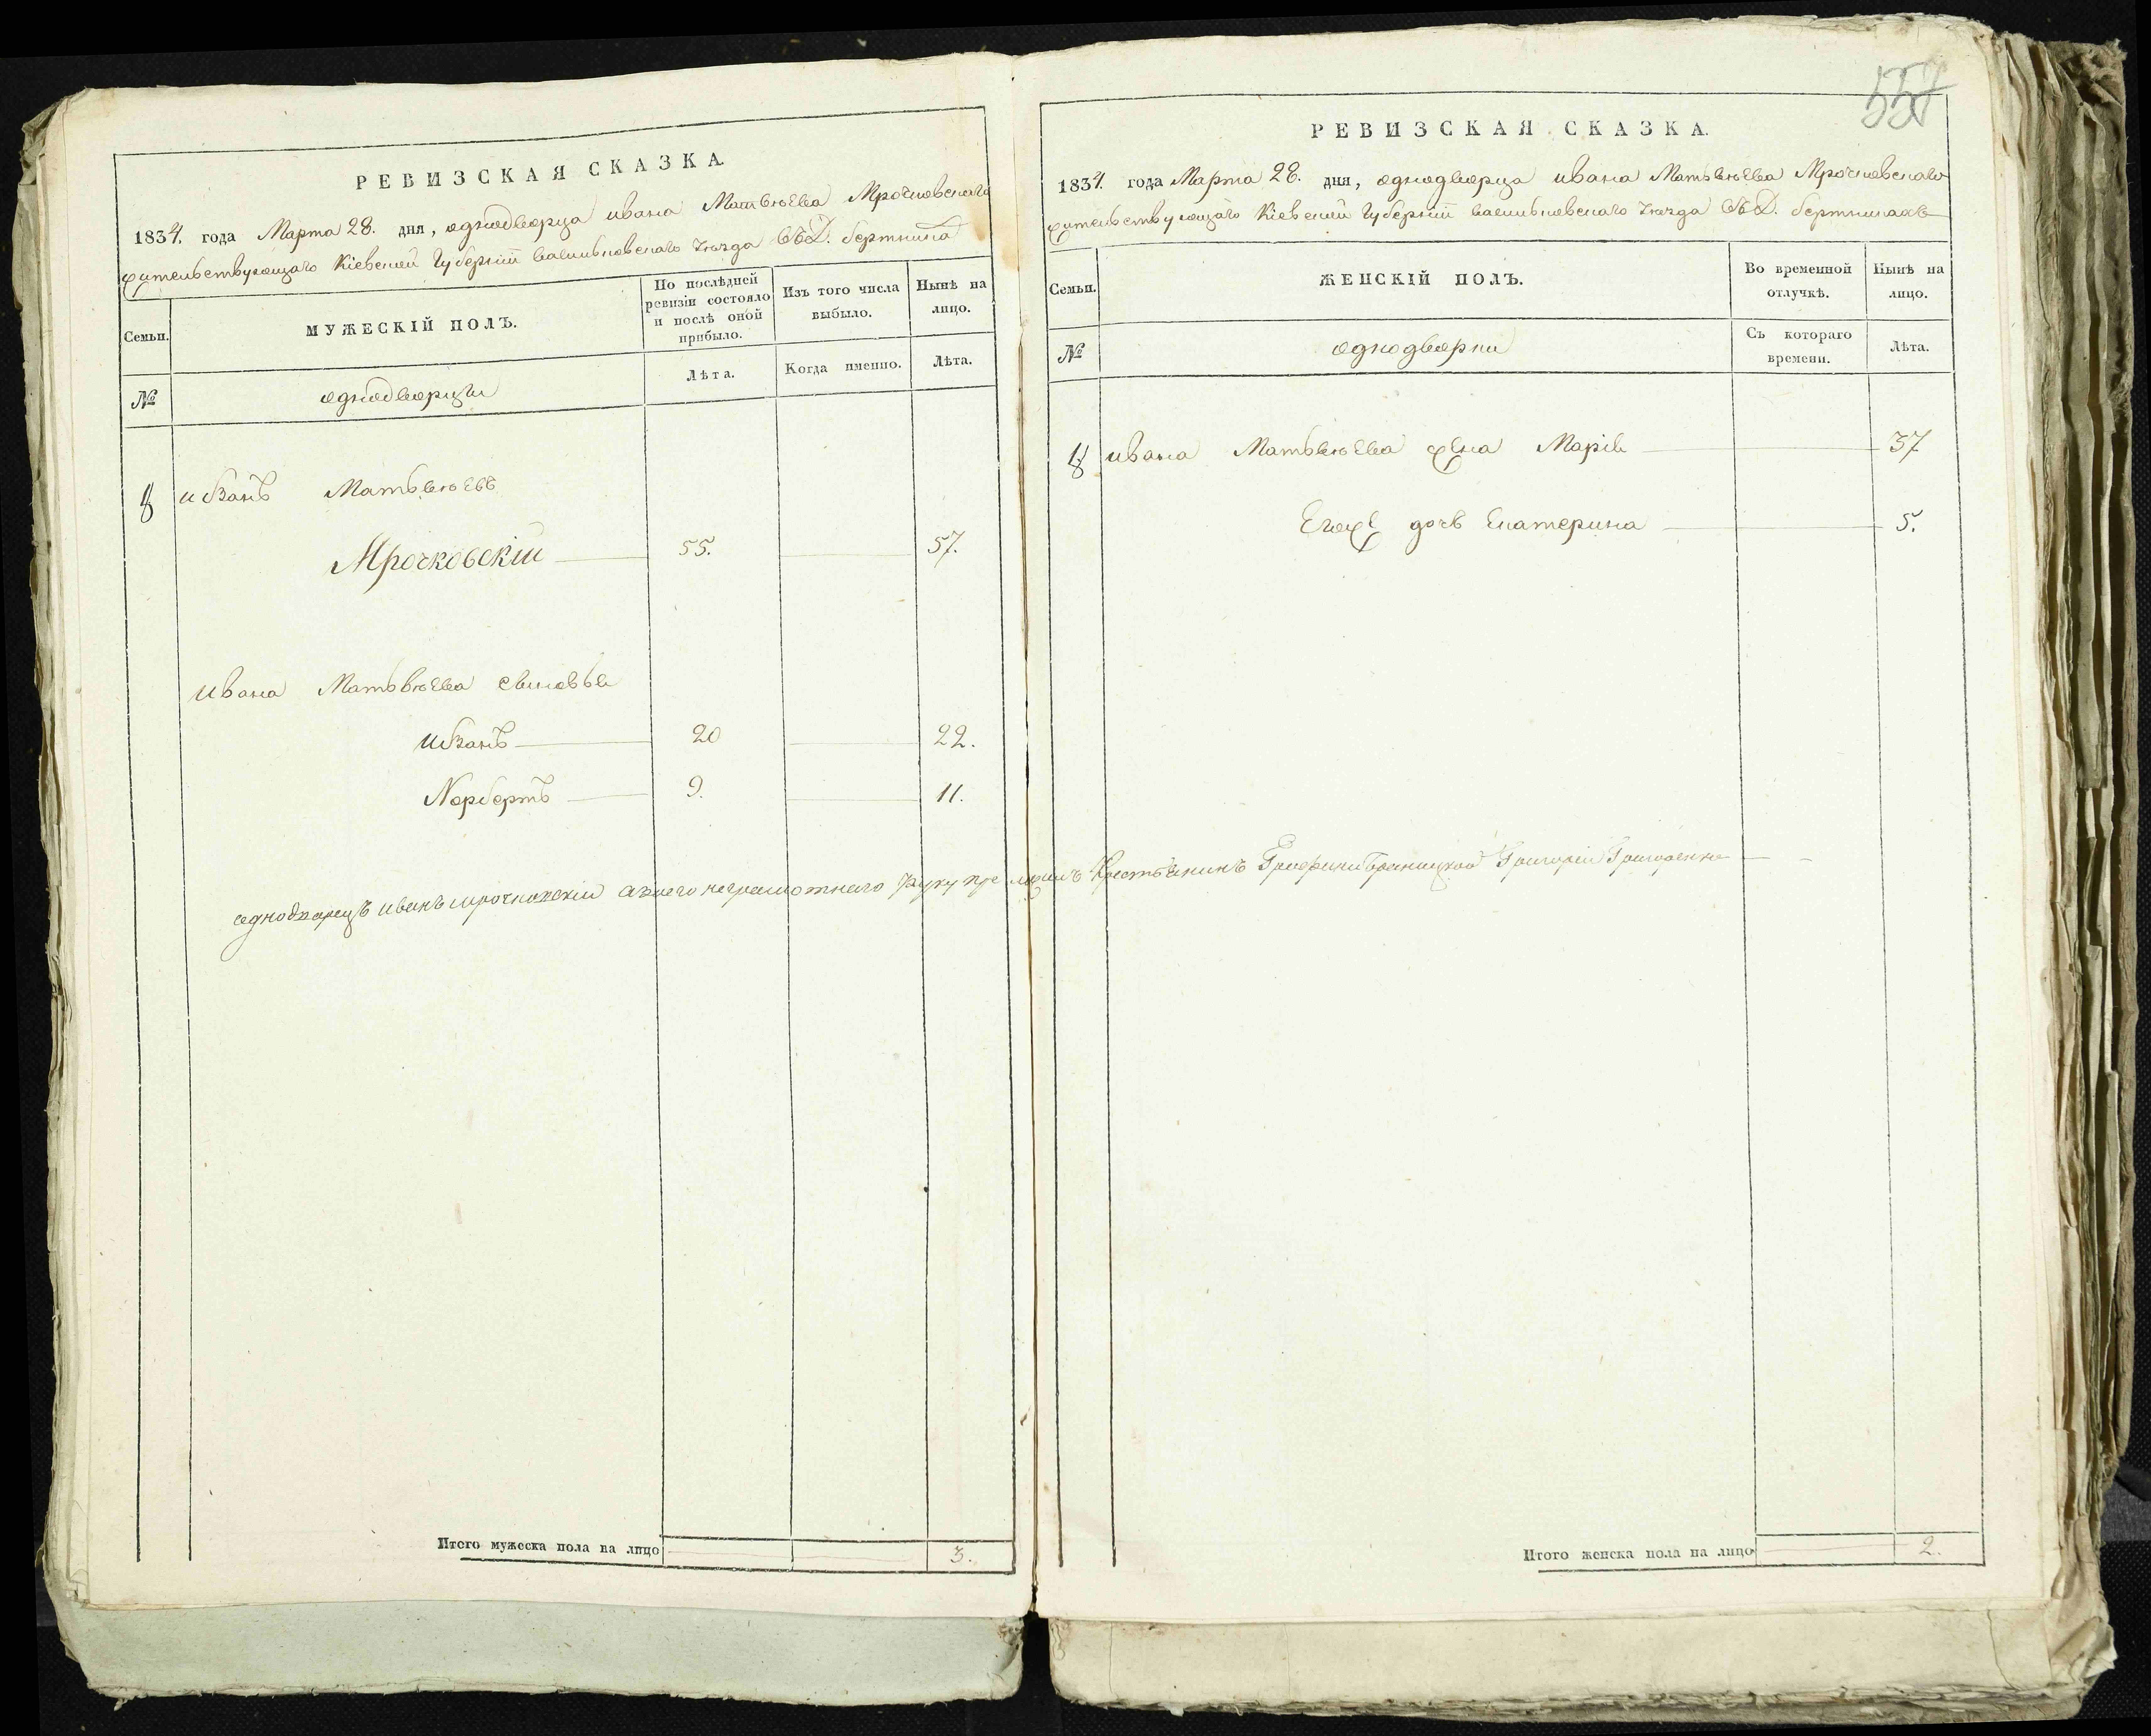 РЕВИЗСКАЯ СКАЗКА
1834. года Марта 28. дня, однодворца ивана Матвѣева Мрочковскаго
жительствующаго Кіевской Губерніи васильковскаго уѣзда въ Д.
Семьи.
МУЖЕСКІЙ ПОЛЪ.
По послѣдней ревизіи состояло и послѣ оной прибыло.
Изъ того числа выбыло.
Нынѣ на лицо.
№
однодворцы
Лѣта.
Когда именно.
Лѣта.
иванъ Матвѣевъ
Мрочковскій 55. 57.
ивана Матвѣева сыновья
иванъ 20 22.
Норбертъ 9. 11.
Итого мужеска пола на лицо 3.
557
РЕВИЗСКАЯ СКАЗКА.
1834. года Марта 28. дня, однодворца ивана Матвѣева Мрочковскаго
жительствующаго Кіевской Губерніи васильковскаго уѣзда въ Д.
Семьи.
ЖЕНСКІЙ ПОЛЪ.
Во временной отлучкѣ.
Нынѣ на лицо.
№
однодворки
Съ котораго времени.
Лѣта.
ивана Матвѣева жена Марія 37
Егоже дочь Екатерина 5.
однодворецъ иванъ мрочковскій а вместо неграмотнаго руку приложилъ Крестьянинъ Графини Браницкой Григорій Григоренко
Итого женска пола на лицо 2.